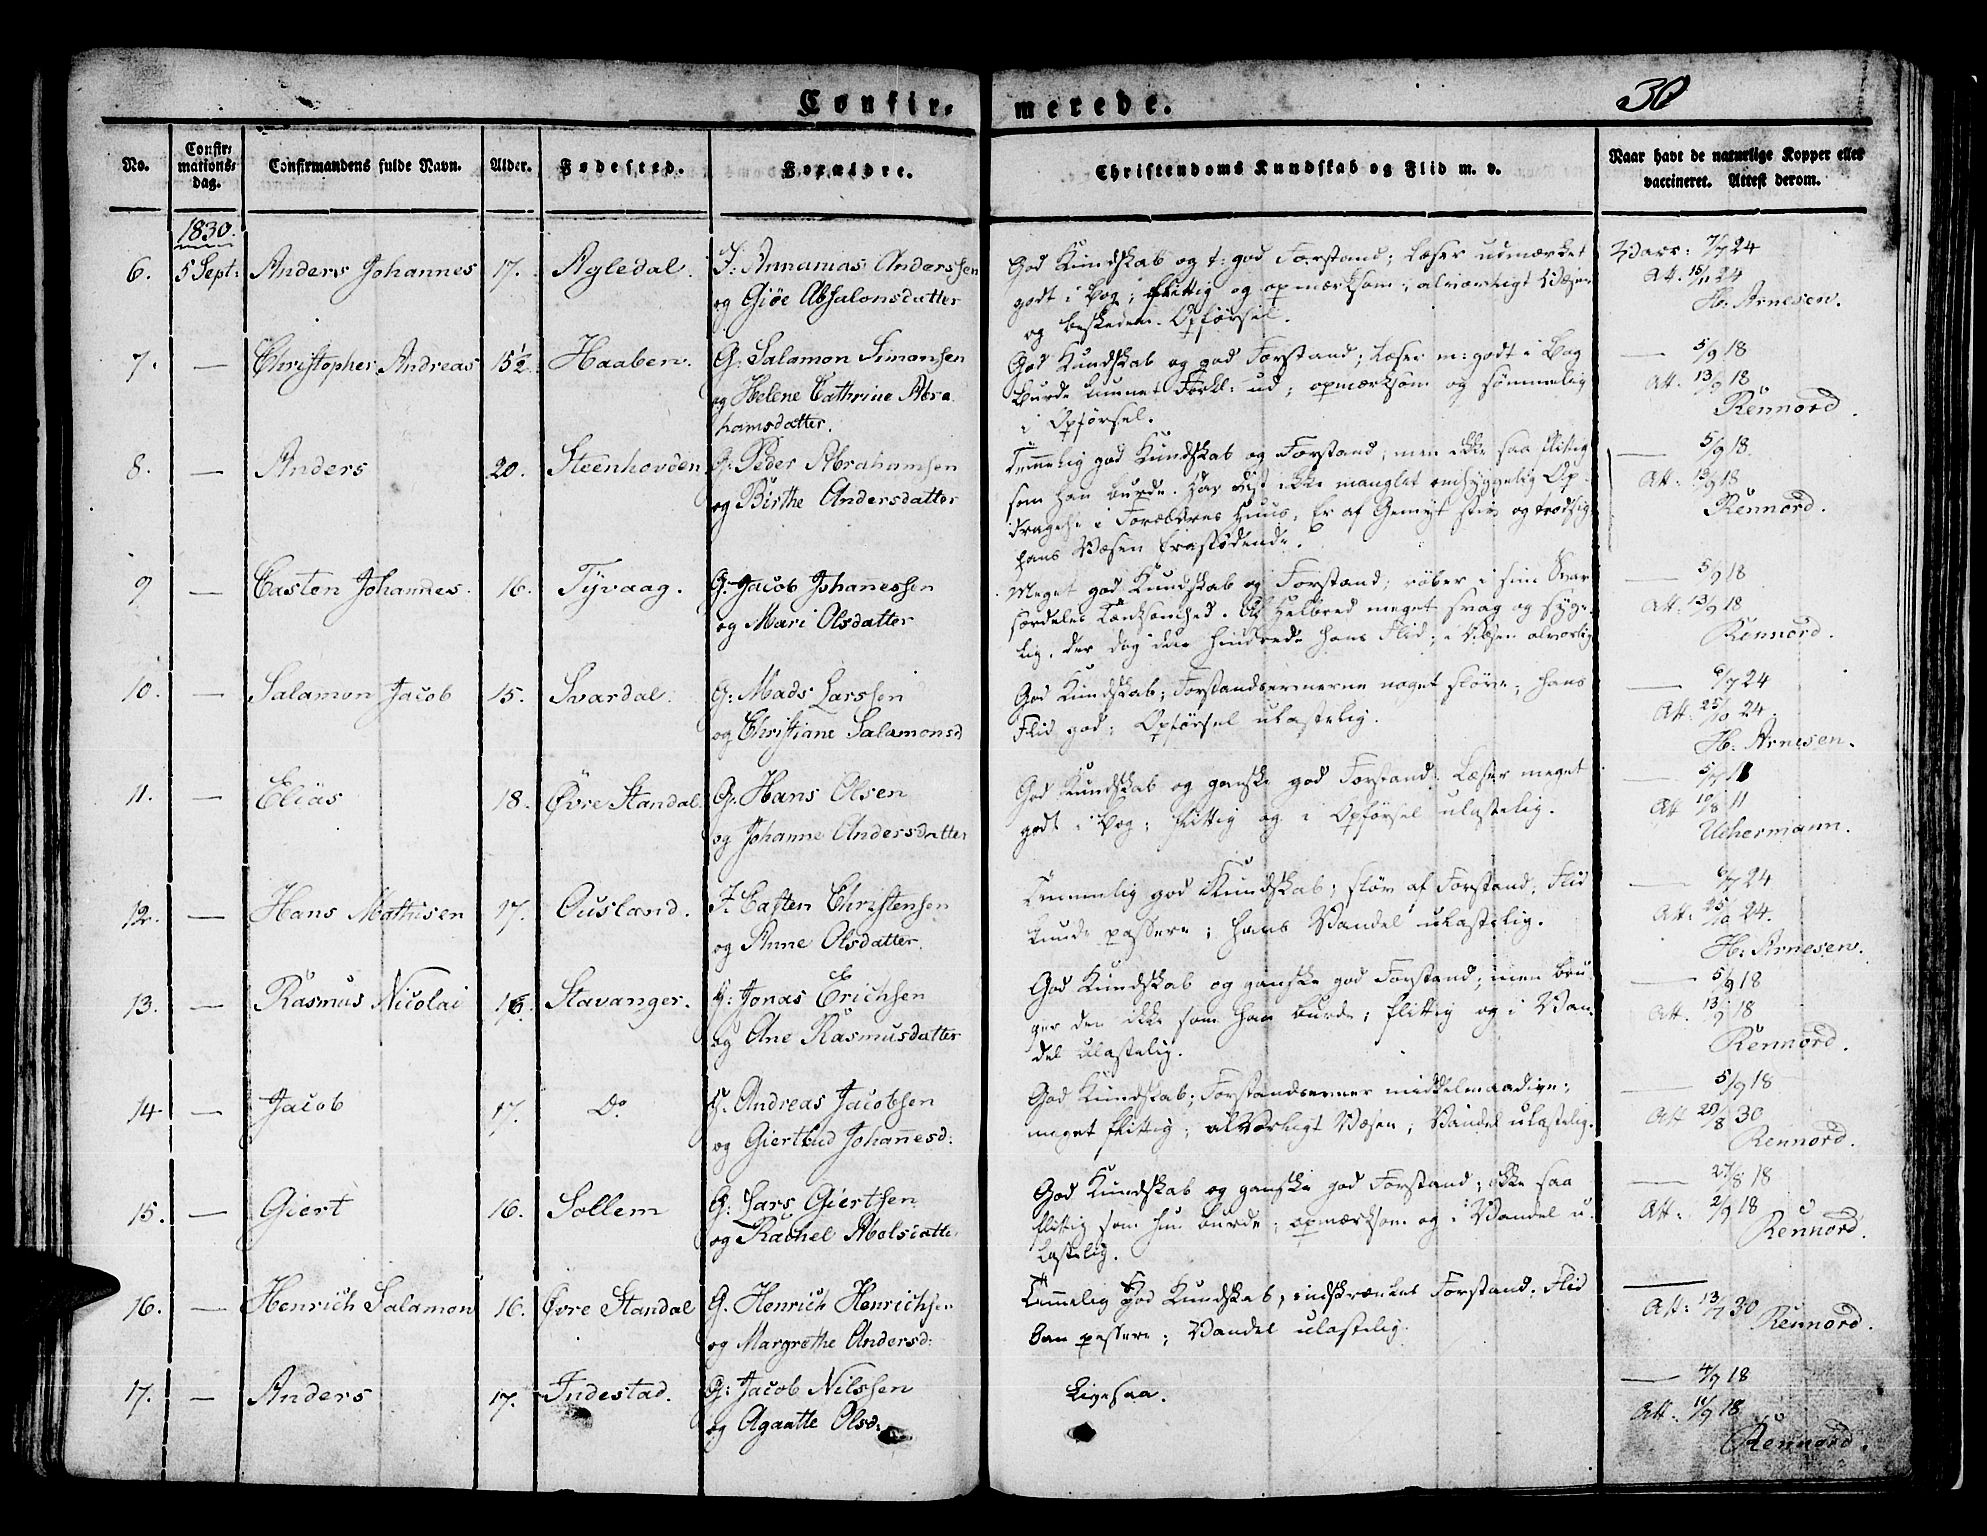 Confir-merede. 30
No. Confirmationsdag. Confirmandens fulde Navn. Alder. Fødested. Forældre. Christendoms Kundskab og Flid m. v. Naar havt de naturlige Kopper eller vaccineret. Attest derom.
1830.
6. 5 Sept: Anders Johannes 17. Agledal. F: Annanias Anderssen God Kundskab og t: god Forstand; Læser udmærket Vacc: 7/7 24
og Giöe Absalonsdatter godt i Bog; flittig og opmærksom; alvorligt Væsen Att. 15/11 24
og beskeden Opførsel. H: Arnesen.
7. — Christopher Andreas 15 1/2 Haaben. G: Salamon Simonsen God Kundskab og god Forstand; Læser m: godt i Bog — 5/9 18
og Helene Cathrine Abra burde kunnet Forkl: ud; opmærksom og sømmelig Att. 13/9 18
hamsdatter. i Opførsel. Rennord.
8. — Anders 20. Steenhovden G: Peder Abrahamsen Temmelig god Kundskab og Forstand, men ikke saa flittig — 5/9 18.
og Birthe Andersdatter som han burde. Har vist ikke manglet omhyggelig Op- Att: 13/9 18
dragelse i Forældres Huus; Er af Gemyt stiv og trodsig Rennord.
hans Væsen frastødende.
9 — Casten Johannes. 16. Tyvaag. G: Jacob Johanessen Meget god Kundskab og Forstand; røber i sine Svar — 5/9 18
og Mari Olsdatter særdeles Tænksomhed. Af Helbred meget svag og syge- Att. 13/9 18
lig, der dog ikke hindrede hans Flid; i Væsen alvorlig Rennord.
10. — Salamon Jacob 15. Svardal. G: Mads Larssen God Kundskab; Forstandsevnerne noget sløve; hans — 6/7 24
og Christiane Salamonsd Flid god; Opførsel ulastelig. Att. 25/10 24.
H: Arnesen.
11. — Elias 18. Övre Standal. G: Hans Olsen God Kundskab og ganske god Forstand. Læser meget — 5/7 11
og Johanne Andersdatter godt i Bog; flittig og i Opførsel ulastelig. Att 10/8 11
Uchermann.
12. — Hans Mathisen 17. Ousland. F. Casten Christensen Temmelig god Kundskab; sløv af Forstand; Flid — 6/7 24
og Anne Olsdatter. kunde passere; hans Vandel ulastelig. Att: 25/10 24.
H: Arnesen.
13. — Rasmus Nicolai 16. Stavanger. G: Jonas Erichsen God Kundskab og ganske god Forstand; men bru — 5/9 18
og Ane Rasmusdatter ger den ikke som han burde; flittig og i Van- Att. 13/9 18
del ulastelig. Rennord.
14 — Jacob 17. Do G. Andreas Jacobsen God Kundskab; Forstandsevner middelmaadige; — 5/9 18
og Giertrud Johannesd: meget flittig; alvorligt Væsen; Vandel ulastelig. Att 29/8 30
Rennord.
15. — Giert 16. Sollem G: Lars Giertsen God Kundskab og ganske god Forstand; ikke saa — 27/8 18
og Rachel flittig som hun burde; opmærksom og i Vandel u- Att: 2/9 18
lastelig. Rennord.
16. — Henrich Salamon 16. Øvre Standal G. Henrich Henrichsen Temmelig god Kundskab; indskrænket Forstand. Flid —
og Margrethe Andersd: kan passere; Vandel ulastelig. Att: 13/7 30
Rennord.
17. — Anders 17. Indestad. G: Jacob Nilssen Ligesaa. — 4/9 18
og Agaatte Olsd: Att. 11/9 18
Rennord.